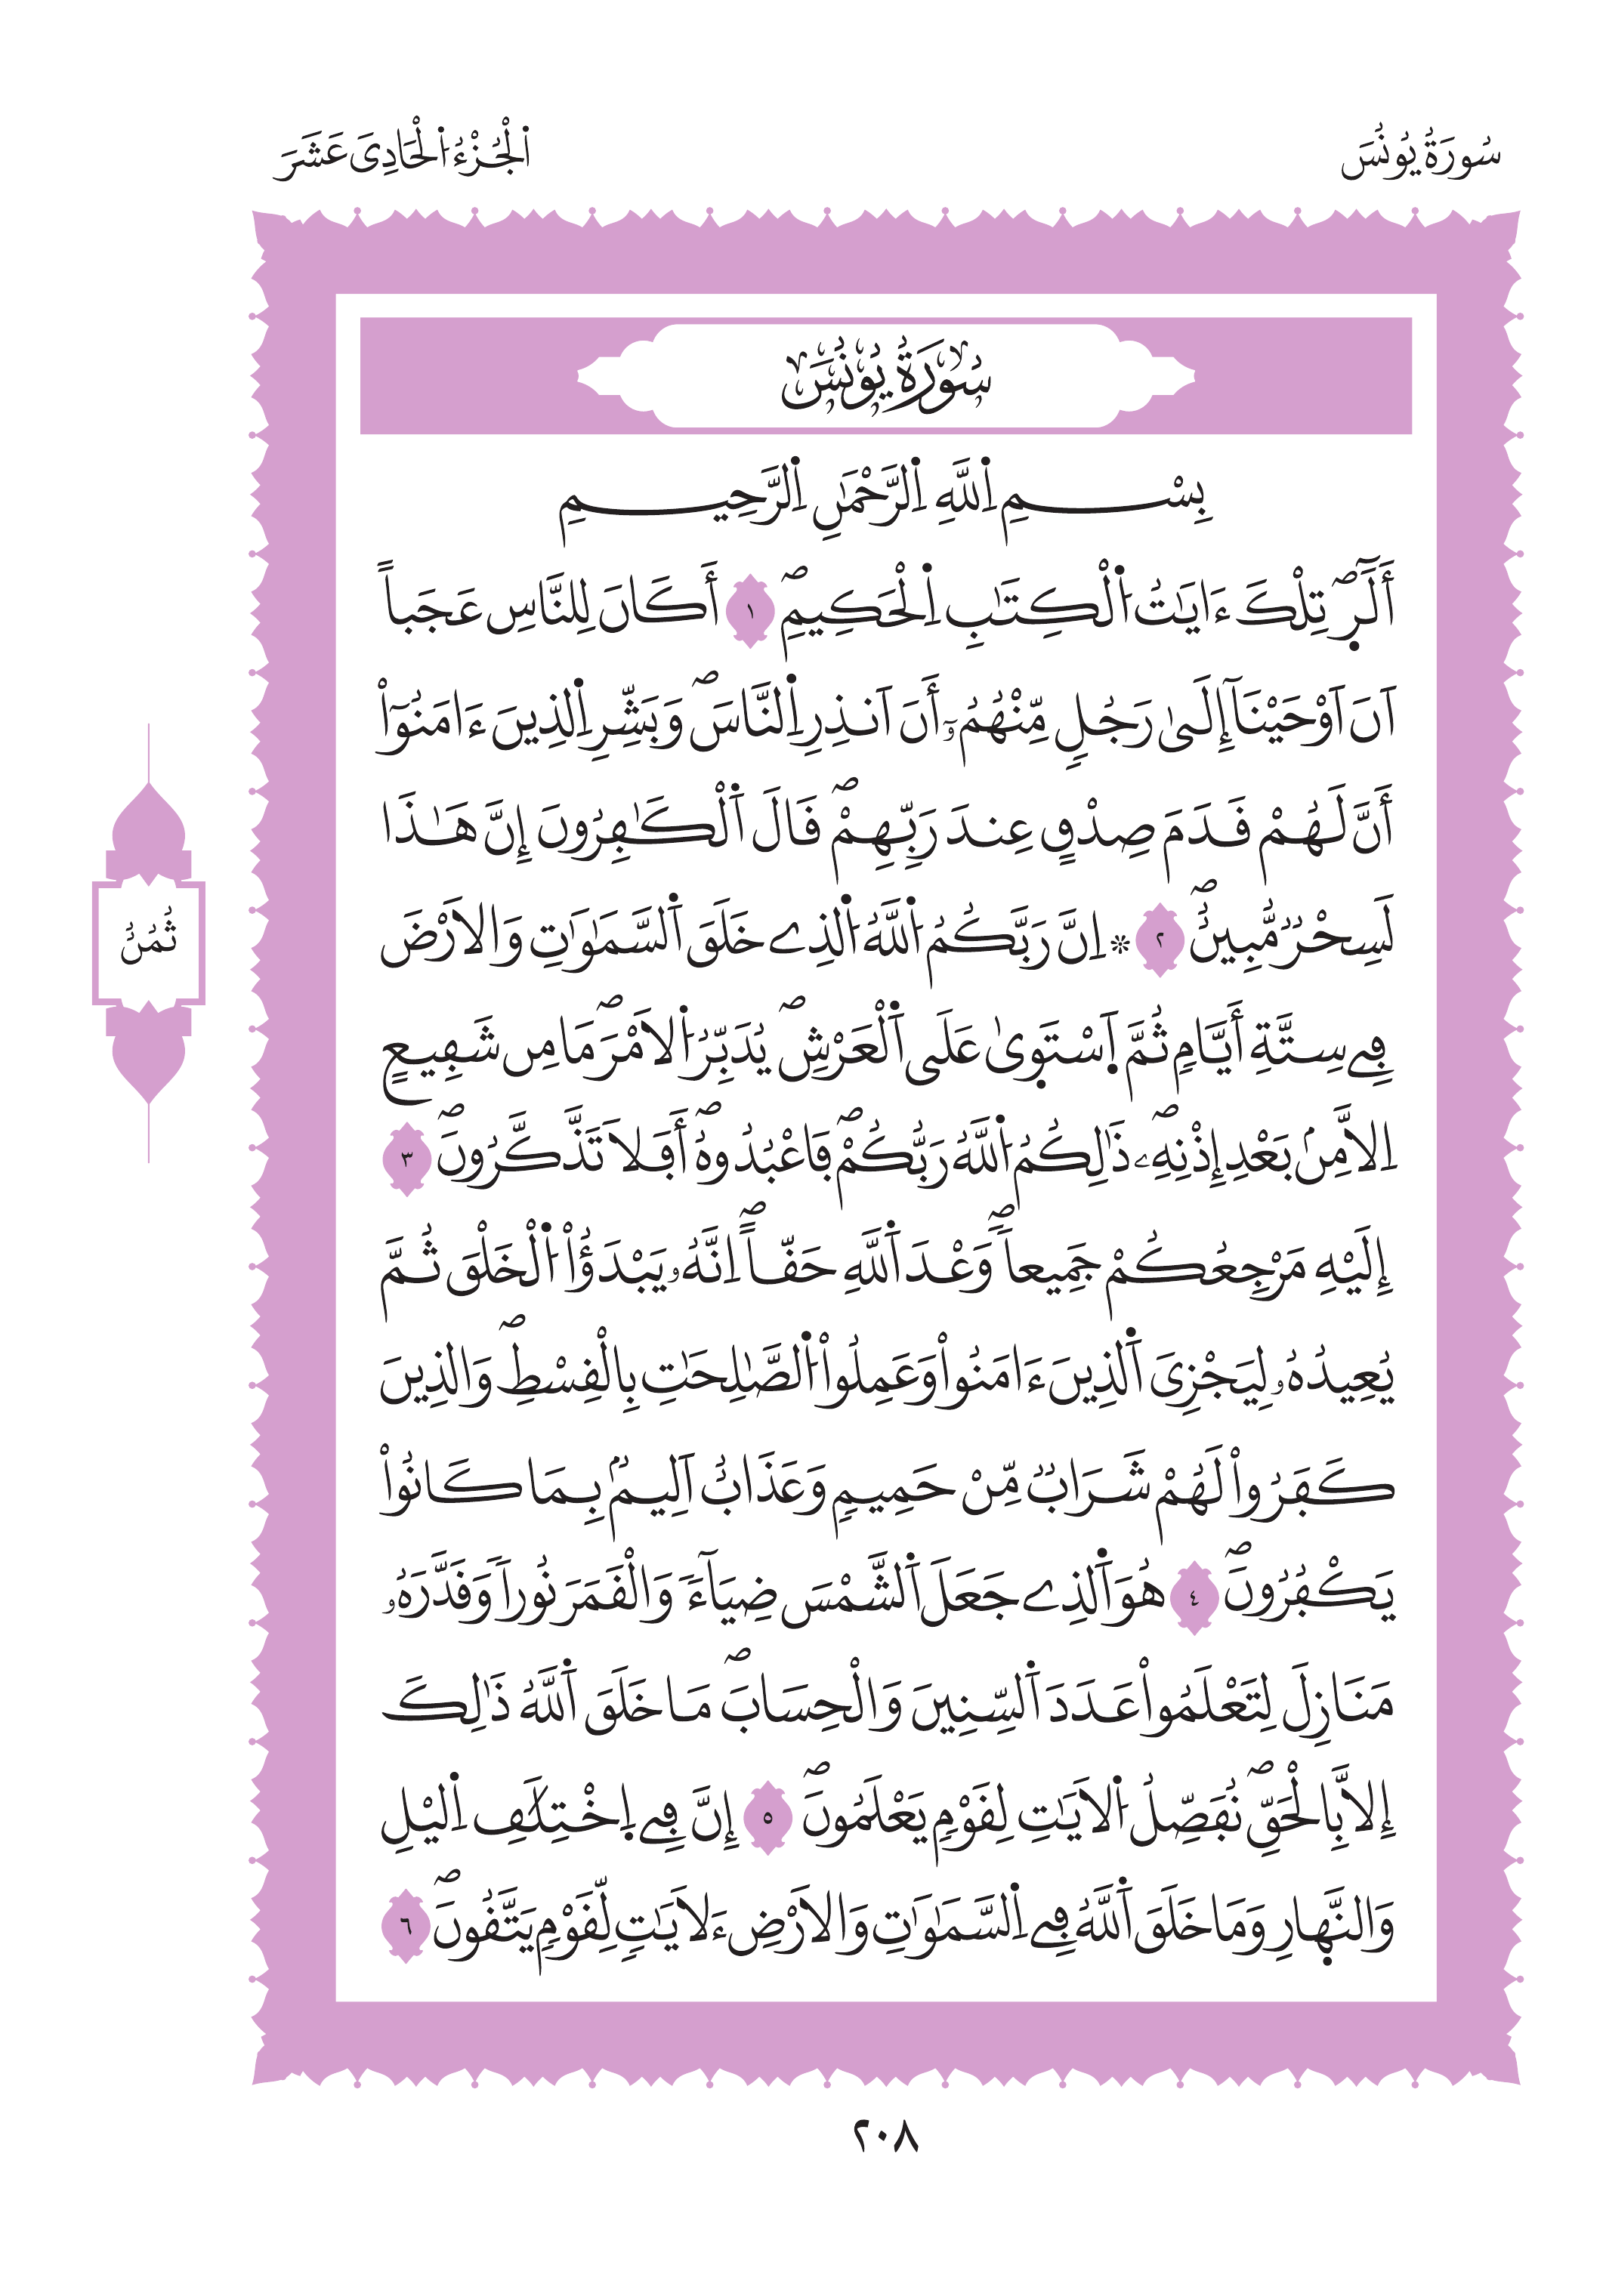 سُورَةُ يُونُسَ
اَ۬لْجُزْءُ اُ۬لْحَادِيَ عَشَرَ
سُورَةُ يُونُسَ
بِسْمِ اِ۬للَّهِ اِ۬لرَّحْمَٰنِ اِ۬لرَّحِيمِ
أَلَٓر۪ۖ تِلْكَ ءَايَٰتُ اُ۬لْكِتَٰبِ اِ۬لْحَكِيمِۖ ١ أَكَانَ لِلنَّاسِ عَجَباً
اَنَ اَوْحَيْنَآ إِلَىٰ رَجُلٖ مِّنْهُمُۥٓ أَنَ اَنذِرِ اِ۬لنَّاسَۖ وَبَشِّرِ اِ۬لذِينَ ءَامَنُوٓاْ
أَنَّ لَهُمْ قَدَمَ صِدْقٍ عِندَ رَبِّهِمْۖ قَالَ اَ۬لْكَٰفِرُونَ إِنَّ هَٰذَا
لَسِحْرٞ مُّبِينٌۖ ٢ ۞ اِنَّ رَبَّكُمُ اُ۬للَّهُ اُ۬لذِے خَلَقَ اَ۬لسَّمَٰوَٰتِ وَالَارْضَ
فِے سِتَّةِ أَيَّامٖ ثُمَّ اَ۪سْتَو۪يٰ عَلَي اَ۬لْعَرْشِۖ يُدَبِّرُ اُ۬لَامْرَۖ مَا مِن شَفِيعٍ
اِلَّا مِنۢ بَعْدِ إِذْنِهِۦۖ ذَٰلِكُمُ اُ۬للَّهُ رَبُّكُمْۖ فَاعْبُدُوهُۖ أَفَلَا تَذَّكَّرُونَۖ ٣
إِلَيْهِ مَرْجِعُكُمْ جَمِيعاٗۖ وَعْدَ اَ۬للَّهِ حَقّاًۖ اِنَّهُۥ يَبْدَؤُاْ اُ۬لْخَلْقَ ثُمَّ
يُعِيدُهُۥ لِيَجْزِيَ اَ۬لذِينَ ءَامَنُواْ وَعَمِلُواْ اُ۬لصَّٰلِحَٰتِ بِالْقِسْطِۖ وَالذِينَ
كَفَرُواْ لَهُمْ شَرَابٞ مِّنْ حَمِيمٖ وَعَذَابٌ اَلِيمُۢ بِمَا كَانُواْ
يَكْفُرُونَۖ ٤ هُوَ اَ۬لذِے جَعَلَ اَ۬لشَّمْسَ ضِيَآءٗ وَالْقَمَرَ نُوراٗ وَقَدَّرَهُۥ
مَنَازِلَ لِتَعْلَمُواْ عَدَدَ اَ۬لسِّنِينَ وَالْحِسَابَۖ مَا خَلَقَ اَ۬للَّهُ ذَٰلِكَ
إِلَّا بِالْحَقِّۖ نُفَصِّلُ اُ۬لَايَٰتِ لِقَوْمٖ يَعْلَمُونَۖ ٥ إِنَّ فِے اِ۪خْتِلَٰفِ اِ۬ليْلِ
وَالنَّه۪ارِ وَمَا خَلَقَ اَ۬للَّهُ فِے اِ۬لسَّمَٰوَٰتِ وَالَارْضِ ءَلَايَٰتٖ لِّقَوْمٖ يَتَّقُونَۖ ٦
ثُمُنُ
٢٠٨